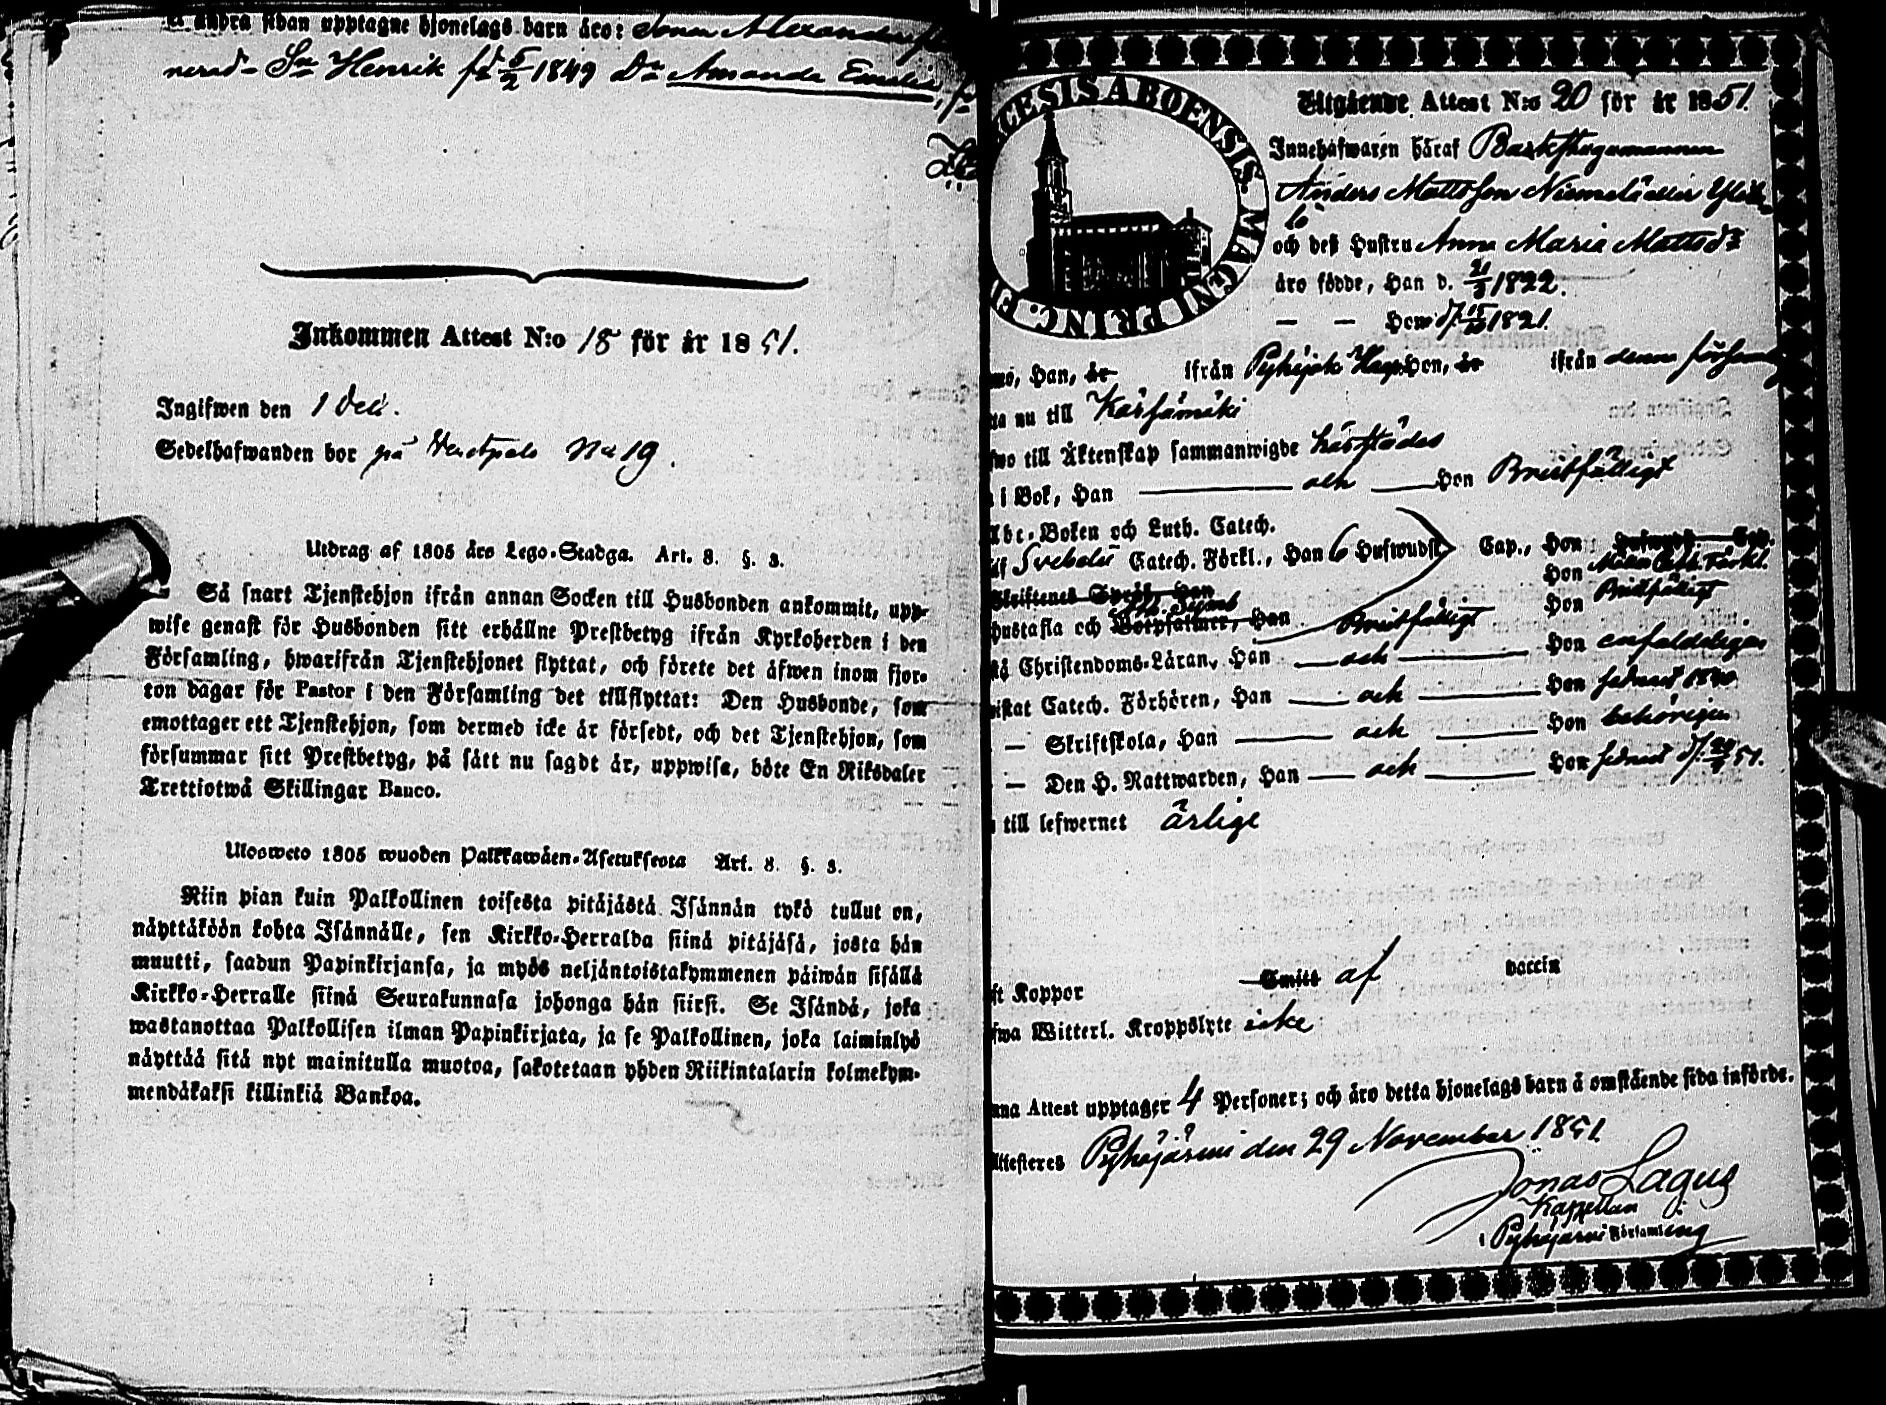 andra sidan upptagne hjonelags barn äro: Sonen Alexander
Sn Henrik fd 5/2 1849 Dr Amanda Emelie,
Inkommen Attest N:o 18 för år 1851.
Ingifwen den 1 Dec.
Sedelhafwanden bor på No 19.
Utdrag af 1805 års Lego-Stadga. Art. 8. §. 3.
Så snart Tjenstehjon ifrån annan Socken till Husbonden ankommit, upp-
wise genast för Husbonden sitt erhållne Prestbetyg ifrån Kyrkoherden i den
Församling, hwarifrån Tjenstehjonet flyttat, och förete det äfwen inom fjor-
ton dagar för Pastor i den Församling det tillflyttat: Den Husbonde, som
emottager ett Tjenstehjon, som dermed icke är försedt, och det Tjenstehjon, som
försummar sitt Prestbetyg, på sätt nu sagdt är, uppwisa, böte En Riksdaler
Trettiotwå Skillingar Banco.
Ulosweto 1805 wuoden Palkkawäen-Asetuksesta Art. 8. §. 3.
Niin pian kuin Palkollinen toisesta pitäjästä Isännän tykö tullut on,
näyttäköön kohta Isännälle, sen Kirkko-Herralda siinä pitäjäsä, josta hän
muutti, saadun Papinkirjansa, ja myös neljäntoistakymmenen päiwän sisällä
Kirkko-Herralle siinä Seurakunnasa johonga hän siirsi. Se Isändä, joka
wastanottaa Palkollisen ilman Papinkirjata, ja se Palkollinen, joka laiminlyö
näyttää sitä nyt mainitulla muotoa, sakotetaan yhden Riikintalarin kolmekym-
mendäkaksi killinkiä Bankoa.
CESIS ABOENSIS. MAGNI PRINC. FI
Utgående Attest N:o 20 för år 1851.
Innehafwaren häraf
Anders Mattsson Niemelä eller
och deß Hustru Anna Maria Mattsdr
äro födde, Han d. 21/3 1822.
— — Hon d. 15/10 1821.
Han, är ifrån Pyhäjoki Hon, är ifrån denna församl
nu till Kärsämäki
till Äktenskap sammanwigde härstädes
i Bok, Han — och — Hon Bristfälligt
Abc-Boken och Luth. Catech.
Svebelii Catech. Förkl., Han 6 Hufwudst Cap., Hon
Hon Förkl.
Skriftenes Språk, Han
Hon Bristfälligt
Hustafla och Botpsalmer, Han Bristfälligt
Christendoms-Läran, Han — och — Hon enfaldeligen
Catech. Förhören, Han — och — Hon sednast 1850
— Skriftskola, Han — och — Hon behörigen
— Den H. Nattwarden, Han — och — Hon sednast d. 51.
till lefwernet ärlige
Koppor Smitt af vaccin
Witterl. Kroppslyte icke
Attest upptager 4 Personer; och äro detta hjonelags barn å omstående sida införde.
Attesteres Pyhäjärwi den 29 November 1851
Jonas Lagus
Kapellan
i Pyhäjärwi Församling